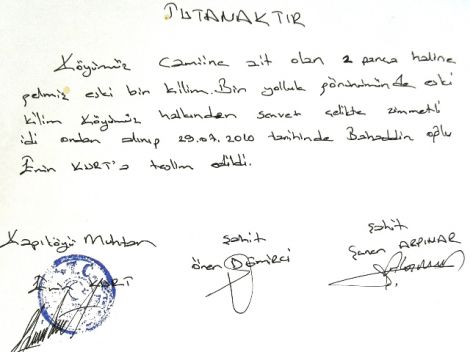 TUTANAKTIR
Köyümüz Camiine ait olan 2 parça haline
gelmiş eski bir kilim. Bir yolluk görünümünde eski
kilim Köyümüz halkından servet çelikte zimmetli
idi ondan alınıp 29.07.2010 tarihinde Bahaddin oğlu
Emin KURT'a teslim edildi.
Kapıköyü Muhtarı
Emin KURT
T.C.
şahit
öner Demirci
şahit
şaner ARPINAR